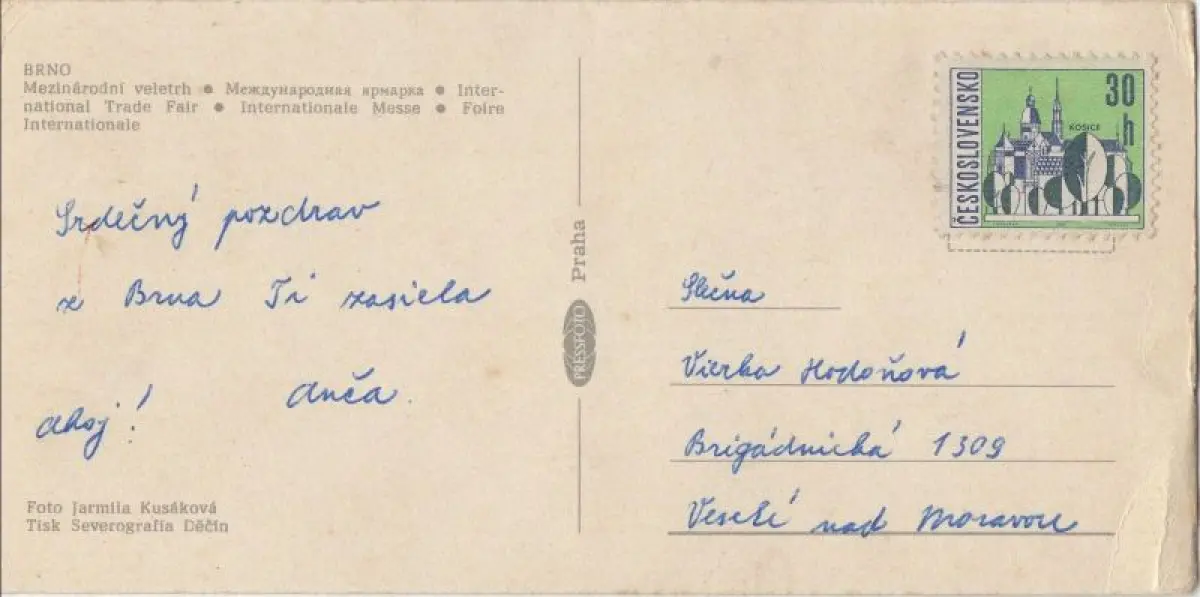 BRNO
Mezinárodní veletrh ● Международная ярмарка ● Inter-
national Trade Fair ● Internationale Messe ● Foire
Internationale
Srdečný pozdrav
z Brna Ti zasiela
Anča.
ahoj!
Foto Jarmila Kusáková
Tisk Severografia Děčín
PRESSFOTO Praha
ČESKOSLOVENSKO
30
h
KOŠICE
Slečna
Vierka Hodoňová
Brigádnická 1309
Veselí nad Moravou